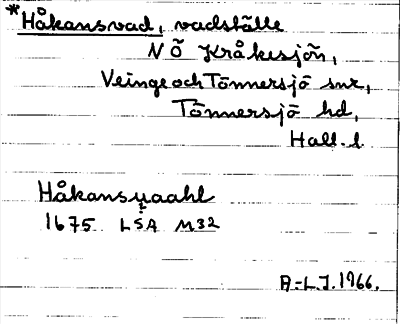 *Håkansvad, vadställe
NÖ Kråkesjön,
Veinge och Tönnersjö snr,
Tönnersjö hd,
Hall. l
Håkansuaahl
1675 LSA M32
A-L.J. 1966.